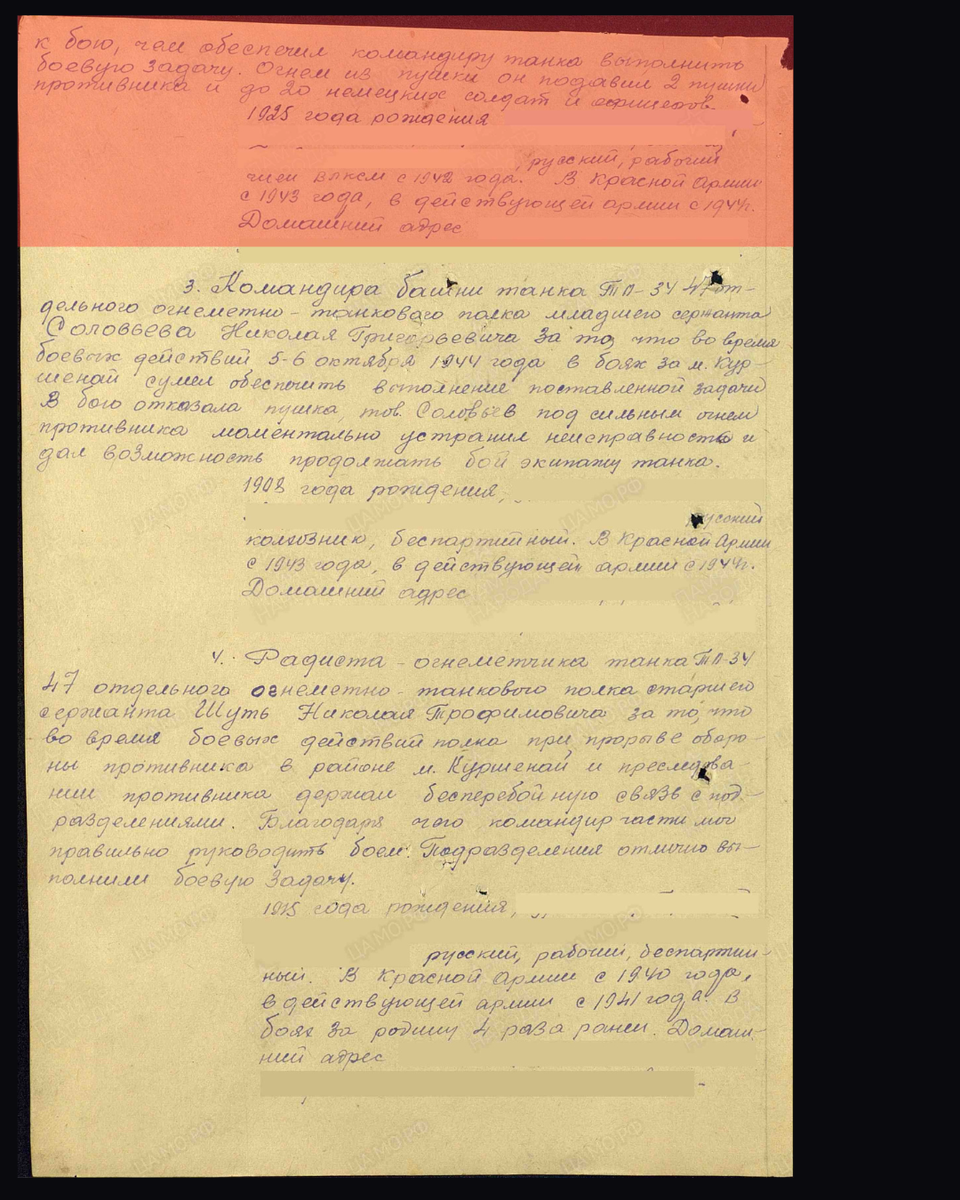 к бою, чем обеспечил командиру танка выполнить
боевую задачу. Огнем из пушки он подавил 2 пушки
противника и до 20 немецких солдат и офицеров
1925 года рождения
русский, рабочий
член ВЛКСМ с 1942 года. В Красной Армии
с 1943 года, в действующей армии с 1944г.
Домашний адрес
3. Командира башни танка ТО-34 47 от-
дельного огнеметно-танкового полка младшего сержанта
Соловьева Николая Григорьевича за то, что во время
боевых действий 5-6 октября 1944 года в боях за м. Кур-
шенай сумел обеспечить выполнение поставленной задачи
В бою отказала пушка тов. Соловьев под сильным огнем
противника моментально устранил неисправность и
дал возможность продолжать бой экипажу танка.
1908 года рождения,
русский
колхозник, беспартийный. В Красной Армии
с 1943 года, в действующей армии с 1944г.
Домашний адрес
4. Радиста-огнеметчика танка ТО-34
47 отдельного огнеметно-танкового полка старшего
сержанта Шуть Николая Трофимовича за то, что
во время боевых действий полка при прорыве оборо-
ны противника в районе м. Куршенай и преследова-
нии противника держал бесперебойную связь с под-
разделениями. Благодаря чего командир части мог
правильно руководить боем. Подразделения отлично вы-
полнили боевую задачу.
1915 года рождения,
русский, рабочий, беспартий-
ный. В Красной Армии с 1940 года,
в действующей армии с 1941 года. В
боях за родину 4 раза ранен. Домаш-
ний адрес